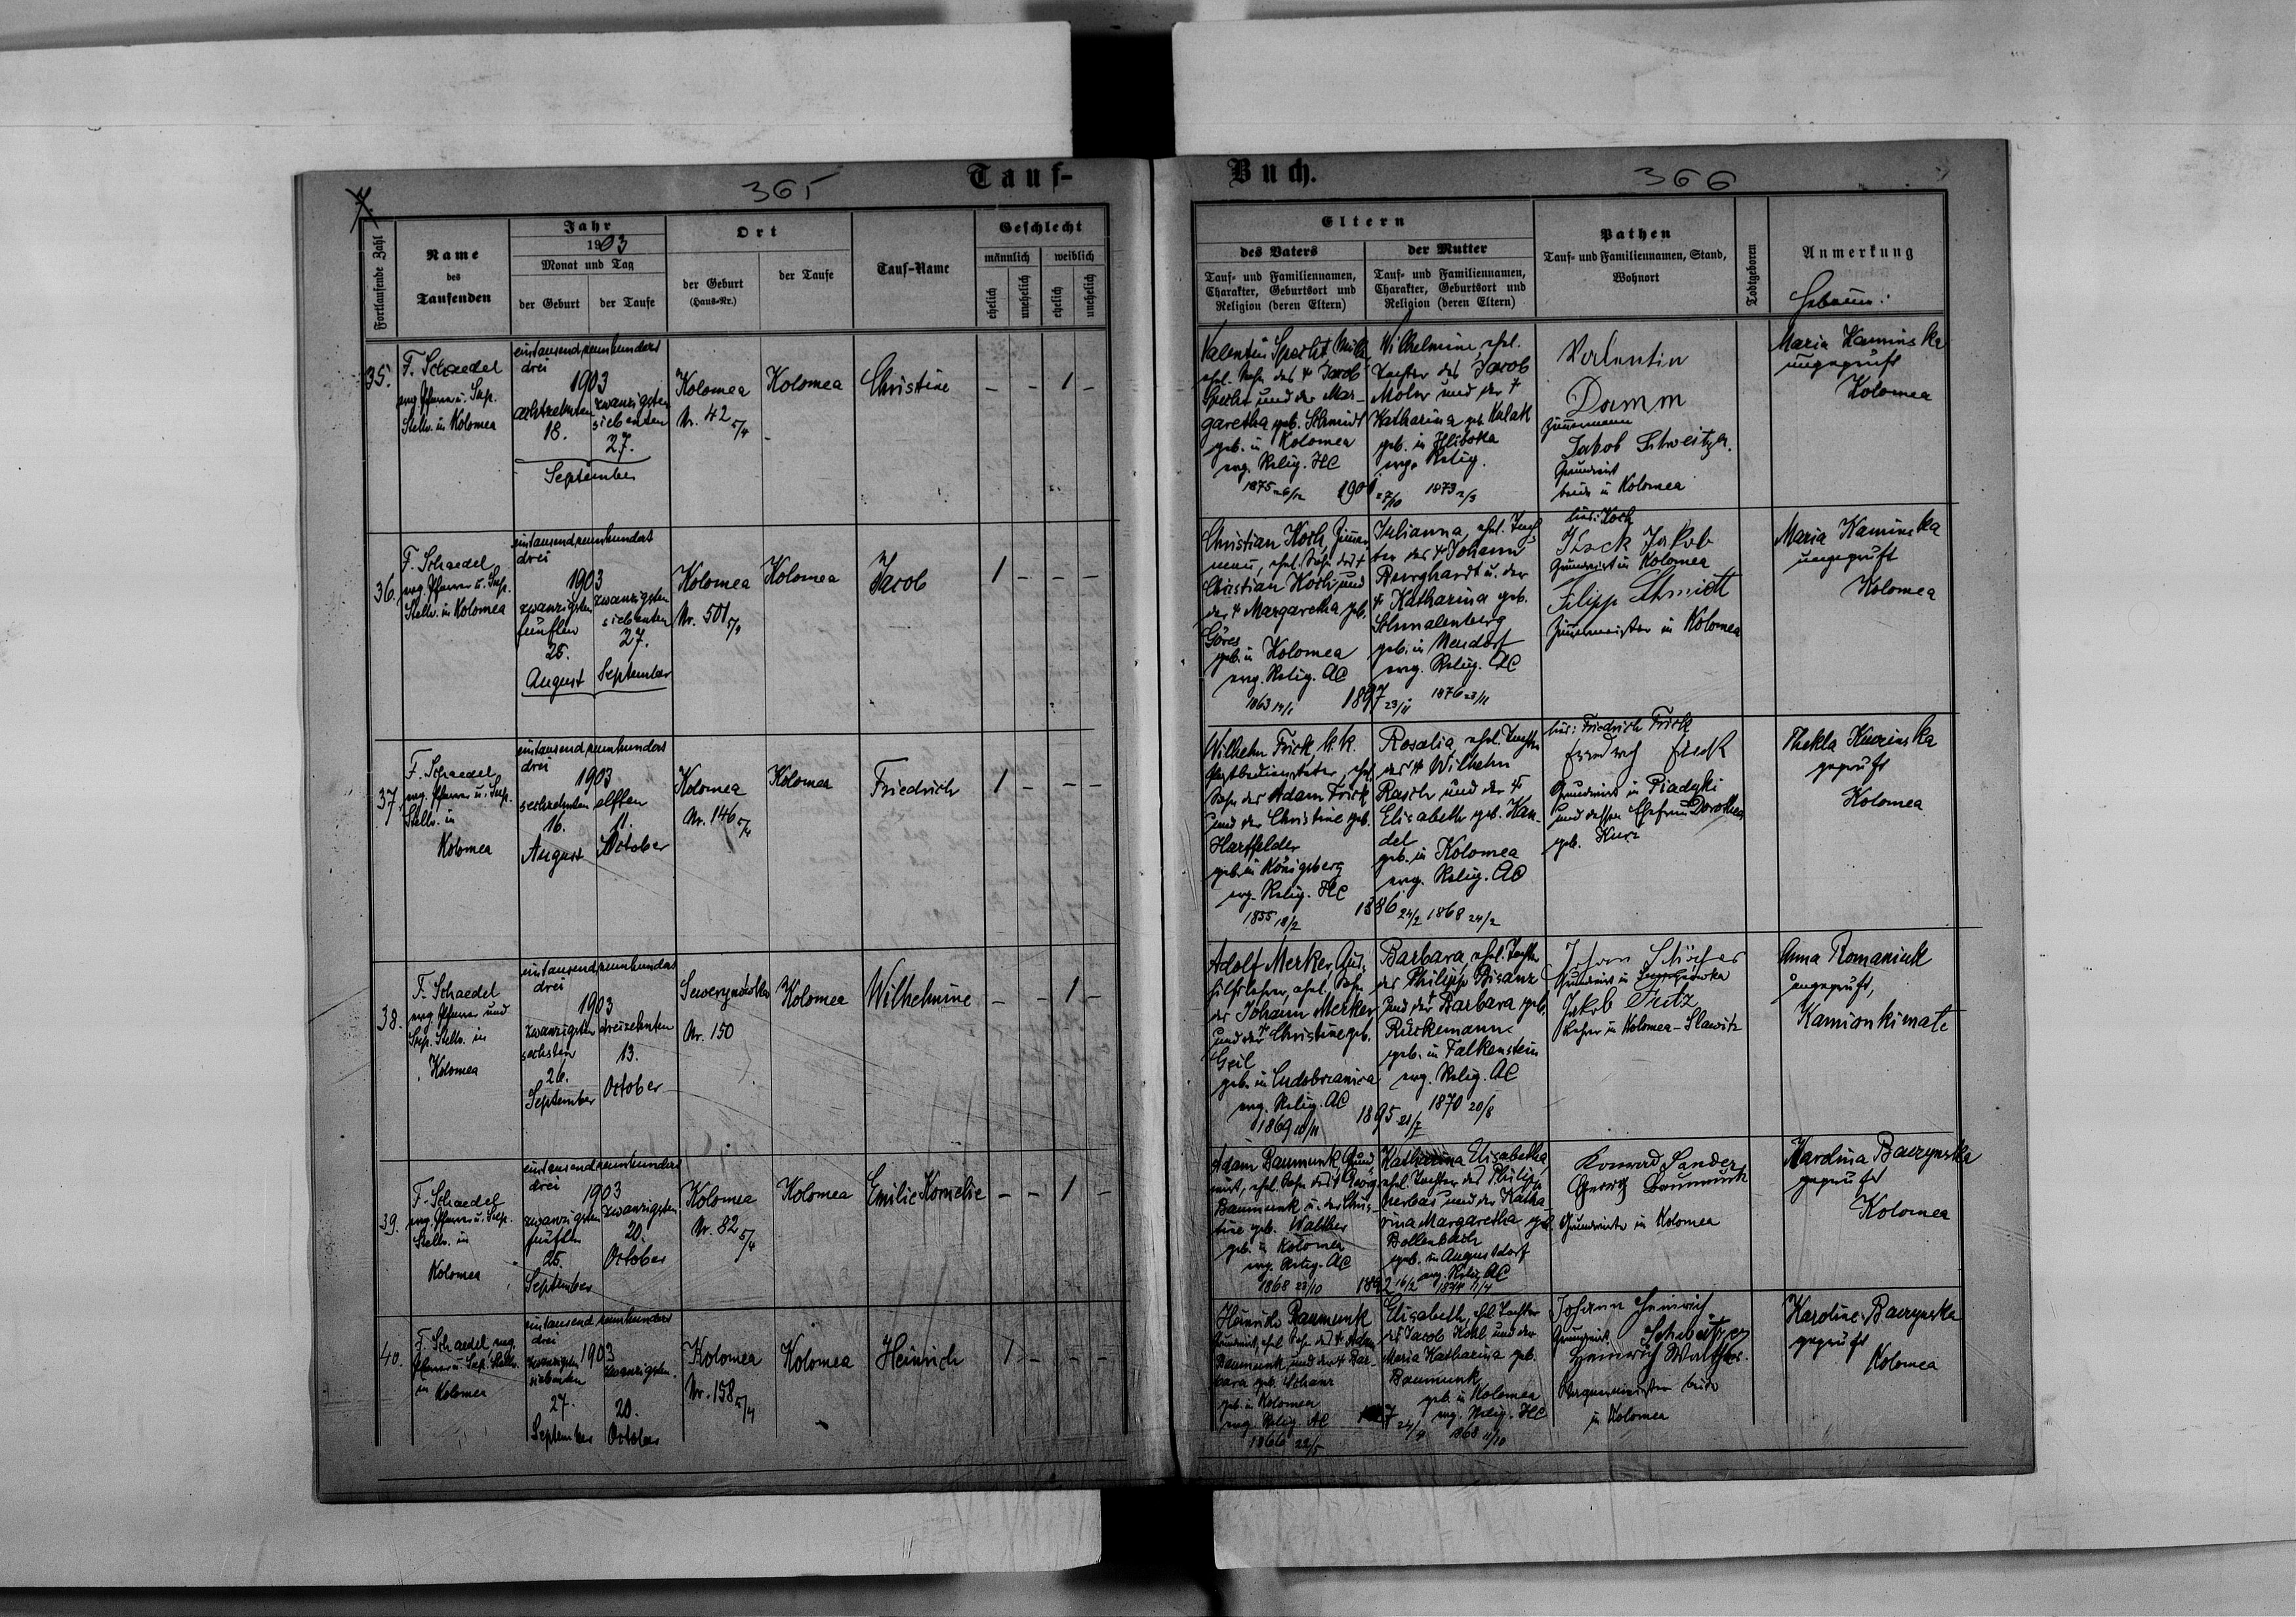 365
Tauf-
Fortlaufende Zahl
Name
des
Taufenden
Jahr
1903
Monat und Tag
der Geburt
der Taufe
Ort
der Geburt
(Haus-Nr.)
der Taufe
Tauf-Name
Geschlecht
männlich
weiblich
ehelich
unehelich
ehelich
unehelich
35.
F. Schaedel
evg. Pfarrer u. Sup.
Stellv. in Kolomea
eintausendneunhundert
drei
1903
achtzehnten
18.
zwanzigsten
siebenten
27.
September
Kolomea
Nr. 42 5/4
Kolomea
Christine
– – 1 –
36.
F. Schaedel
evg. Pfarrer u. Sup.
Stellv. in Kolomea
eintausendneunhundert
drei
1903
zwanzigsten
fünften
25.
August
zwanzigsten
siebenten
27.
September
Kolomea
Nr. 501
Kolomea
Jacob
1 – – –
37.
F. Schaedel
evg. Pfarrer u. Sup.
Stellv. in
Kolomea
eintausendneunhundert
drei
1903
sechzehnten
16.
August
elften
11.
October
Kolomea
Nr. 146 5/4
Kolomea
Friedrich
1 – – –
38.
F. Schaedel
evg. Pfarrer und
Sup. Stellv. in
Kolomea
eintausendneunhundert
drei
1903
zwanzigsten
sechsten
26.
September
dreizehnten
13.
October
Sewerynówka
Nr. 150
Kolomea
Wilhelmine
– – 1 –
39.
F. Schaedel
evg. Pfarrer u. Sup.
Stellv. in
Kolomea
eintausendneunhundert
drei
1903
zwanzigsten
fünften
25.
September
zwanzigsten
20.
October
Kolomea
Nr. 82 5/4
Kolomea
Emilie Kornelie
– – 1 –
40.
F. Schaedel, evg.
Pfarrer u. Sup. Stellv.
in Kolomea
eintausendneunhundert
drei
1903
zwanzigsten
siebenten
27.
September
zwanzigsten
20.
October
Kolomea
Nr. 158 5/4
Kolomea
Heinrich
1 – – –
Buch.
366
Eltern
des Vaters
Tauf- und Familiennamen,
Charakter, Geburtsort und
Religion (deren Eltern)
der Mutter
Tauf- und Familiennamen,
Charakter, Geburtsort und
Religion (deren Eltern)
Pathen
Tauf- und Familiennamen, Stand,
Wohnort
Todtgeboren
Anmerkung
Hebamme:
Valentin Specht,
ehel. Sohn des † Jacob
Specht und der Mar-
garetha geb. Schmidt
geb. in Kolomea
evg. Relig. HC
1875 26/12
1901 27/10
Wilhelmine, ehel.
Tochter des Jacob
Moler und der †
Katharina geb.
geb. in Hliboka
evg. Relig.
1873 2/3
Valentin
Damm
Zimmermann
Jakob Schweitzer.
Grundwirt
beide in Kolomea
Maria Kaminska
ungeprüft
Kolomea
Christian Koch, Zimmer-
mann, ehel. Sohn des †
Christian Koch und
der † Margaretha geb.
Göres
geb. in Kolomea
evg. Relig. AC
1863 14/1
1897 23/11
Julianna, ehel. Toch-
ter des † Johann
Burghardt u. der
† Katharina geb.
Schmalenberg
geb. in Neudorf
evg. Relig. AC
1876 23/11
lies: Koch
Jakob
Grundwirt in Kolomea
Filipp Schmidt
Zimmermeister in Kolomea
Maria Kaminska
ungeprüft
Kolomea
Wilhelm Frick, k. k.
Postbediensteter, ehel.
Sohn des Adam Frick
und der Christine geb.
Hartfelder
geb. in Königsberg
evg. Relig. HC
1855 18/2
1886 24/2
Rosalia, ehel. Tochter
des † Wilhelm
Rasch und der †
Elisabeth geb. Kan-
del
geb. in Kolomea
evg. Relig. AC
1868 24/2
lies: Friedrich Frick
Grundwirt in Piadyki
und dessen Ehefrau Dorothea
geb. Kurz
Thekla
geprüft
Kolomea
Adolf Merker,
hilfslehrer, ehel. Sohn
des Johann Merker
und der † Christine geb.
Geil
geb. in
evg. Relig. AC
1869 10/11
1895 21/7
Barbara, ehel. Tochter
des Philipp Bisanz
und der † Barbara geb.
Rückemann
geb. in Falkenstein
evg. Relig. AC
1870 20/8
Grundwirt in
Jakob Fritz
Lehrer in Kolomea-Slawitz
Anna Romaniuk
ungeprüft,
Kamionki małe
Adam Baumunk, Grund-
wirt, ehel. Sohn des † Georg
Baumunk u. der Chris-
tine geb. Walther
geb. in Kolomea
evg. Relig. AC
1868 23/10
1892 16/2
Katharina Elisabetha,
ehel. Tochter des Philipp
und der Katha-
rina Margaretha geb.
Bollenbach
geb. in Augustdorf
evg. Relig. AC
1874 11/4
Konrad Sander
Georg Baumunk
Grundwirte in Kolomea
Karolina Baczynska
geprüft
Kolomea
Heinrich Baumunk
Grundwirt, ehel. Sohn des † Adam
Baumunk und der † Bar-
bara geb. Schanz
geb. in Kolomea
evg. Relig. AC
1866 22/5
Elisabeth, ehel. Tochter
des Jacob Kohl und der
Maria Katharina geb.
Baumunk
geb. in Kolomea
evg. Relig. HC
1868 11/10
Johann Heinrich
Grundwirt Schweitzer
Heinrich Walther.
beide
in Kolomea
Karoline Baczynska
geprüft
Kolomea